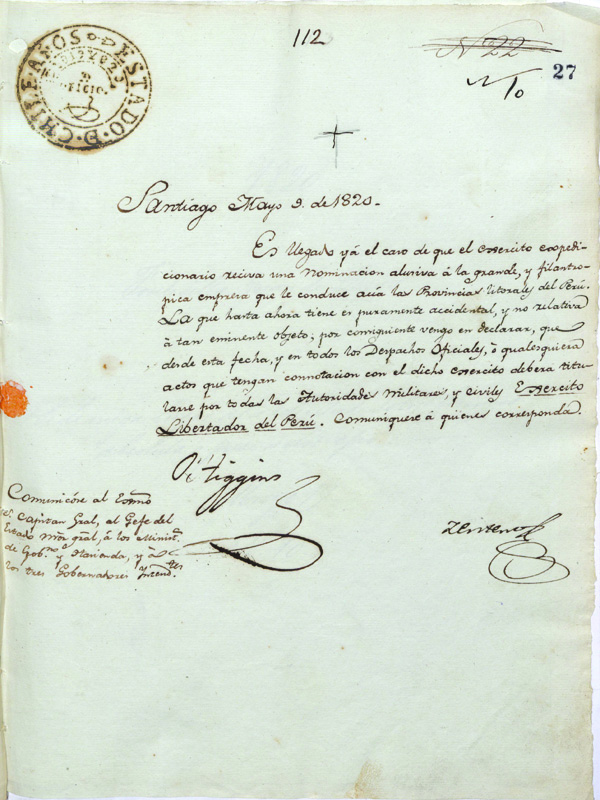 112
N 22
27
N 10
ESTADO D CHILE AÑOS
OFICIO.
Santiago Mayo 9. de 1820.
Es llegado yá el caso de que el Exercito expedi-
cionario reciva una nominacion alusiva á la grande, y filantro-
pica empresa que le conduce acia las Provincias litorales del Perú.
La que hasta ahora tiene es puramente accidental, y no relativa
á tan eminente objeto; por consiguiente vengo en declarar, que
desde esta fecha, y en todos los Despachos Oficiales, ó qualesquiera
actos que tengan connotacion con el dicho exercito deberá titu-
larse por todas las Autoridades Militares, y Civiles Exercito
Libertador del Perú. Comuniquese á quienes corresponda.
O'Higgins
Zenteno
Comunicóse al Exmo
Capitan Gral, al Gefe del
Estado Mor gral, á los Minist.s
de Gobno y Hacienda, y á
los tres Gobernadores Intend.tes